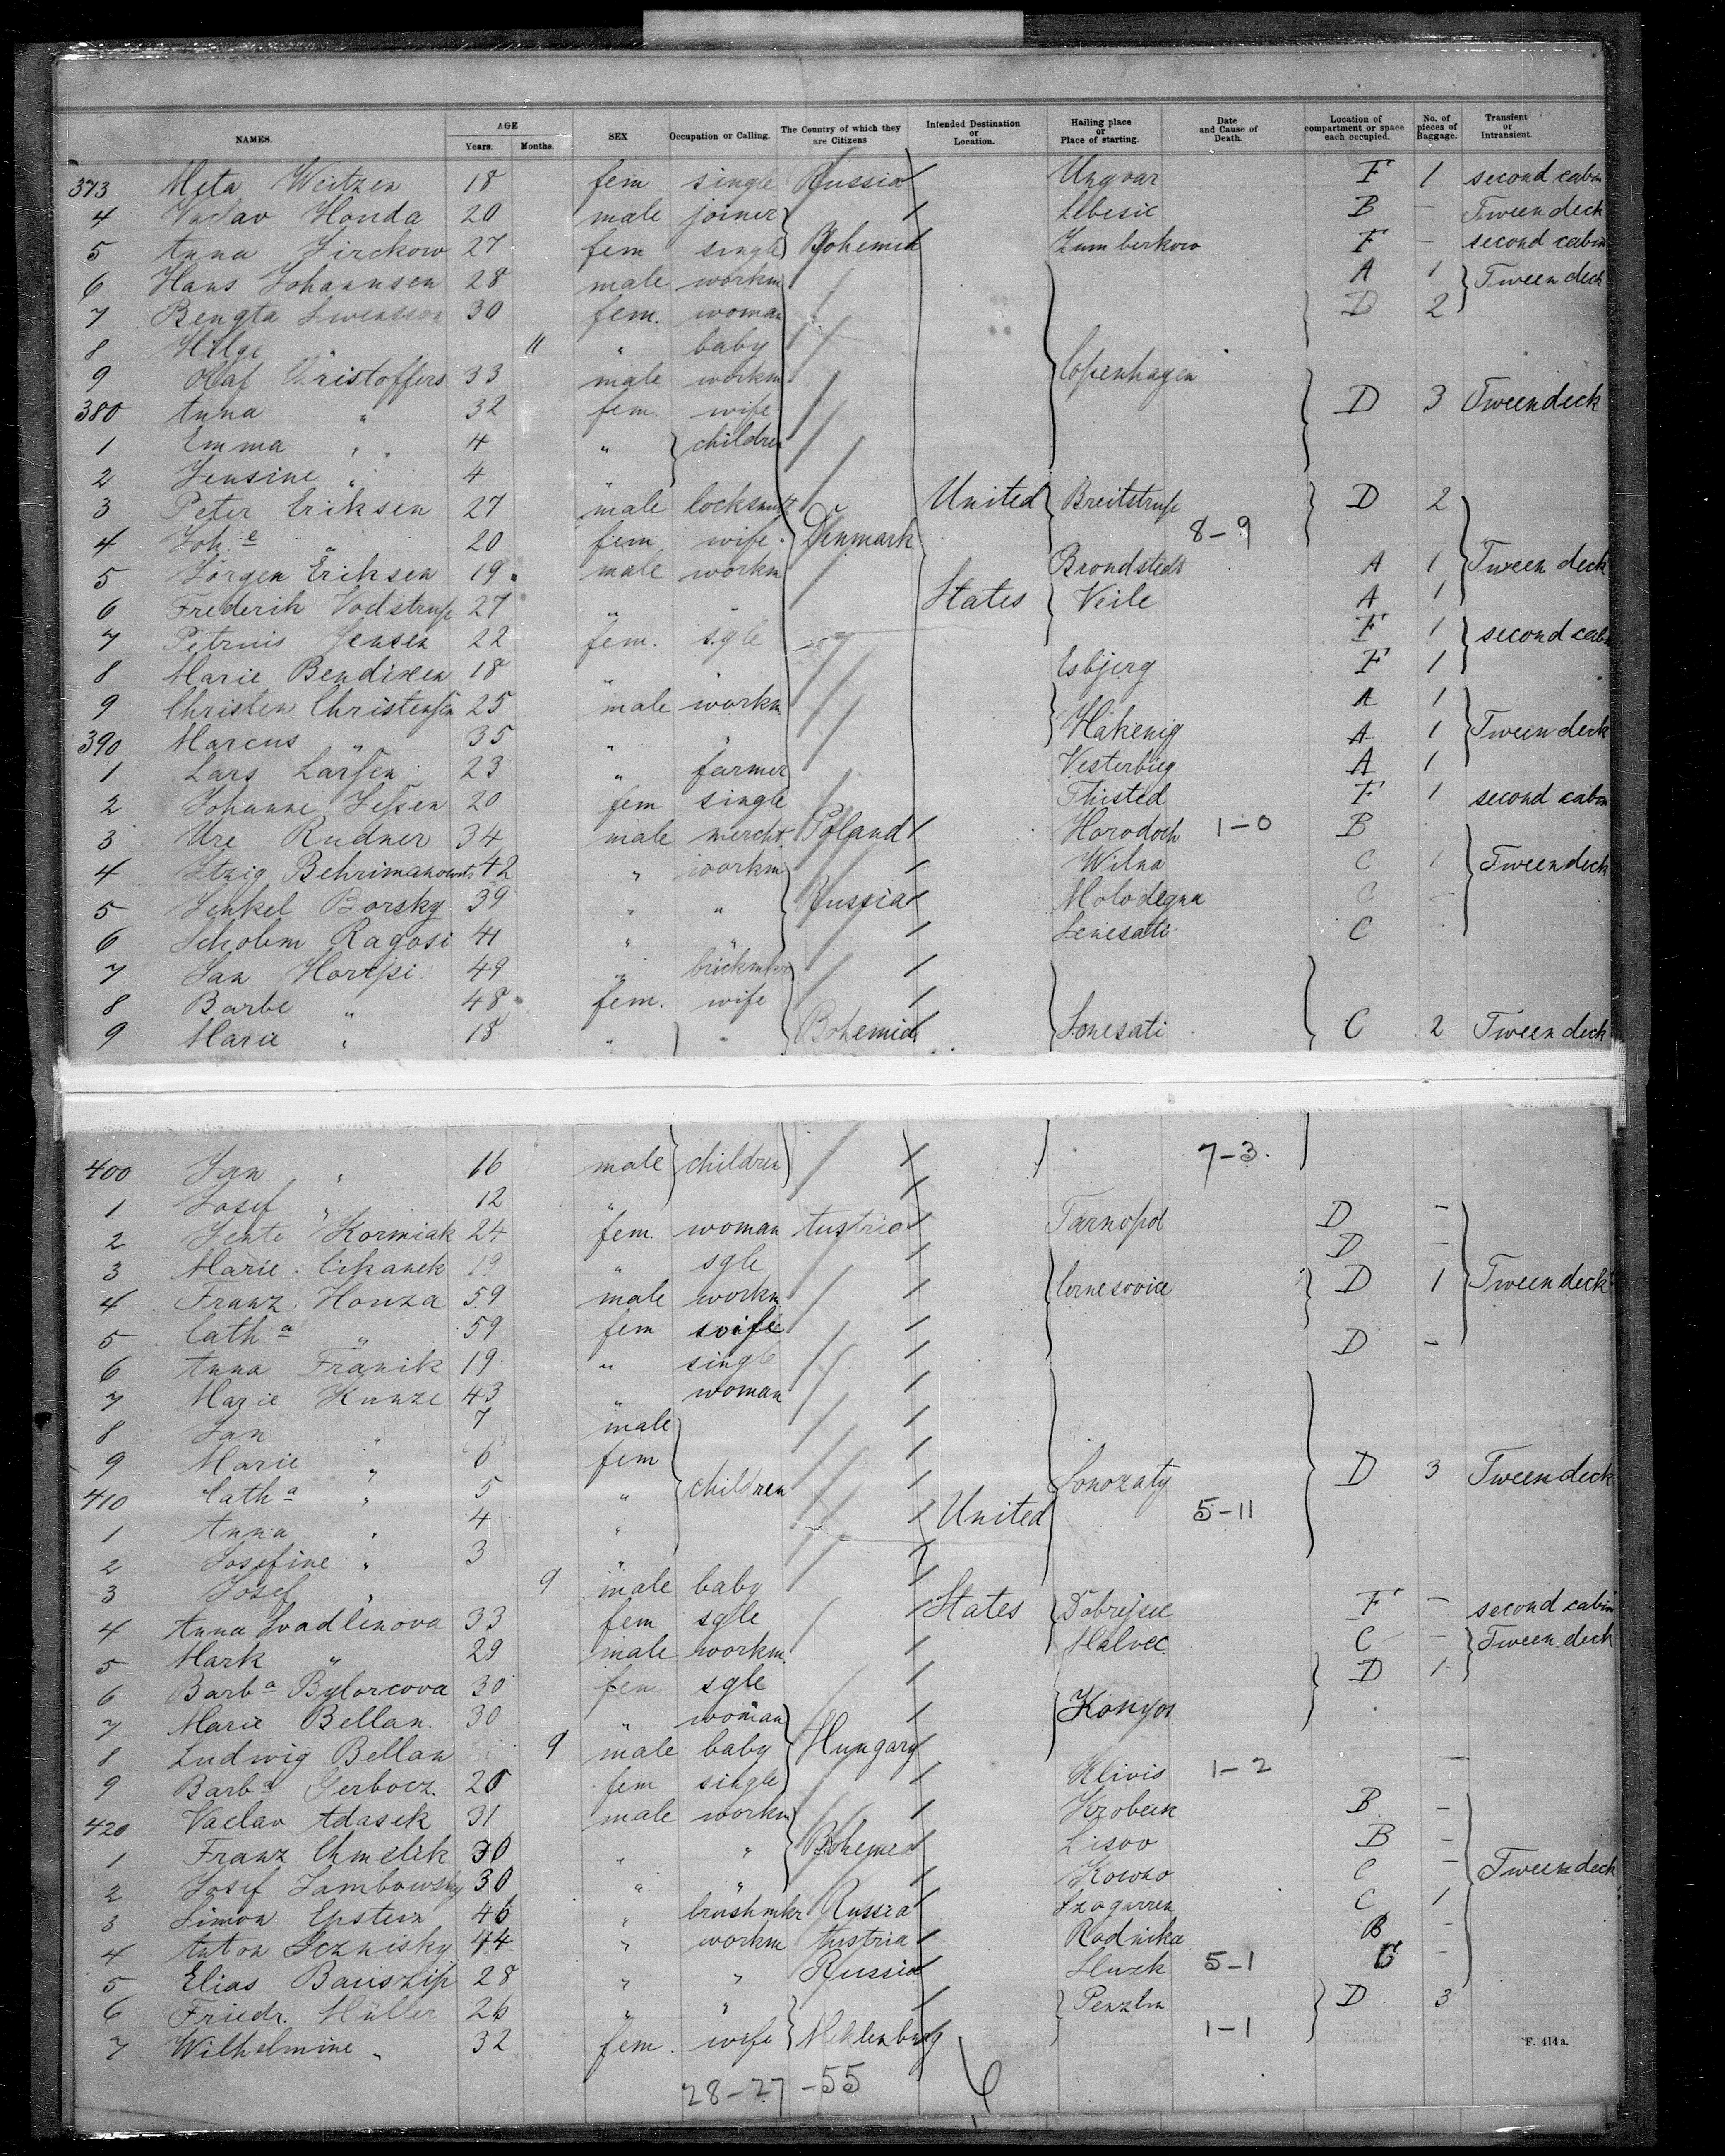 NAMES. AGE Years. Months. SEX Occupation or Calling. The Country of which they are Citizens Intended Destination or Location. Hailing place or Place of starting. Date and Cause of Death. Location of compartment or space each occupied. No. of pieces of Baggage. Transient or Intransient.
373 Meta Weitzen 18 fem single Russia Ungvar F 1 second cabin
4 Vaclav Honda 20 male joiner Lebesic B — Tween deck
5 Anna Zirckow 27 fem single Bohemia Zumberkow F — second cabin
6 Hans Johannsen 28 male workm A 1 Tween deck
7 Bengta Swensson 30 fem. woman D 2
8 Hilge " 11 " baby
9 Olaf Christoffers 33 male workm Copenhagen
380 Anna " 32 fem. wife D 3 Tween deck
1 Emma " 4 " children
2 Jensine " 4 "
3 Peter Eriksen 27 male locksmith United Breitstrup D 2
4 Joh.e " 20 fem wife Denmark 8-9
5 Jörgen Eriksen 19 male workm Brondstedt A 1 Tween deck
6 Frederik Vodstrup 27 " " States Veile A 1
7 Petrnis Jensen 22 fem. sgle F 1 second cabin
8 Marie Bendixen 18 " " Esbjerg F 1
9 Christen Christensen 25 male workm A 1
390 Marcus " 35 " " Hakenig A 1 Tween deck
1 Lars Larsen 23 " farmer Vesterbieg A 1
2 Johanne Jessen 20 fem single Thisted F 1 second cabin
3 Ure Rudner 34 male mercht. Poland Horodoch 1-0 B
4 Itzig Behrimanowits 42 " workm Wilna C 1 Tween deck
5 Jenkel Borsky 39 " " Russia Molodegna C -
6 Scholem Ragosi 41 " " Senesati C -
7 Jan Horejsi 49 " brickmkr
8 Barbe " 48 fem. wife
9 Marie " 18 " " Bohemia Sonesati C 2 Tween deck
400 Jan " 16 male children 7-3.
1 Josef " 12 "
2 Jente Kormiak 24 fem. woman Austria Tarnopol D -
3 Marie Cikanek 19 " sgle D -
4 Franz Houza 59 male workm Cornesovice D 1 Tween deck
5 Cath.a " 59 fem wife
6 Anna Franik 19 " single D -
7 Marie Kunze 43 " woman
8 Jan " 7 male
9 Marie " 6 fem
410 Cath.a " 5 " children Sonozaty D 3 Tween deck
1 Anna " 4 " United 5-11
2 Josefine " 3 "
3 Josef " 9 male baby
4 Anna Svadlenova 33 fem sgle States Dobrejsic F - second cabin
5 Mark " 29 male workm. Malvec C - Tween deck
6 Barb.a Bylorcova 30 fem sgle D 1
7 Marie Bellan. 30 " woman Konyos
8 Ludwig Bellan 9 male baby Hungary
9 Barb.a Gerbocz. 20 fem single Klivis 1-2 —
420 Vaclav Adasek 31 male workm Krobeik B -
1 Franz Chmelik 30 " " Bohemia Lisov B -
2 Josef Sambowsky 30 " " Kowno C - Tween deck
3 Simon Epstein 46 " brushmkr Russia Szagarren C 1
4 Anton Scznisky 44 " workm Austria Rodnika B -
5 Elias Bauszip 28 " " Russia Sluzk 5-1 -
6 Friedr. Müller 26 " " Penzlin D 3
7 Wilhelmine " 32 fem. wife Meklenburg 1-1
F. 414a.
28-27-55